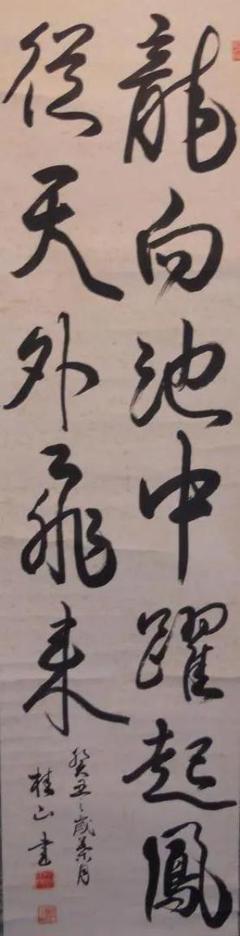 龍向池中躍起鳳
從天外飛来
癸丑之歳菊月
桂山書